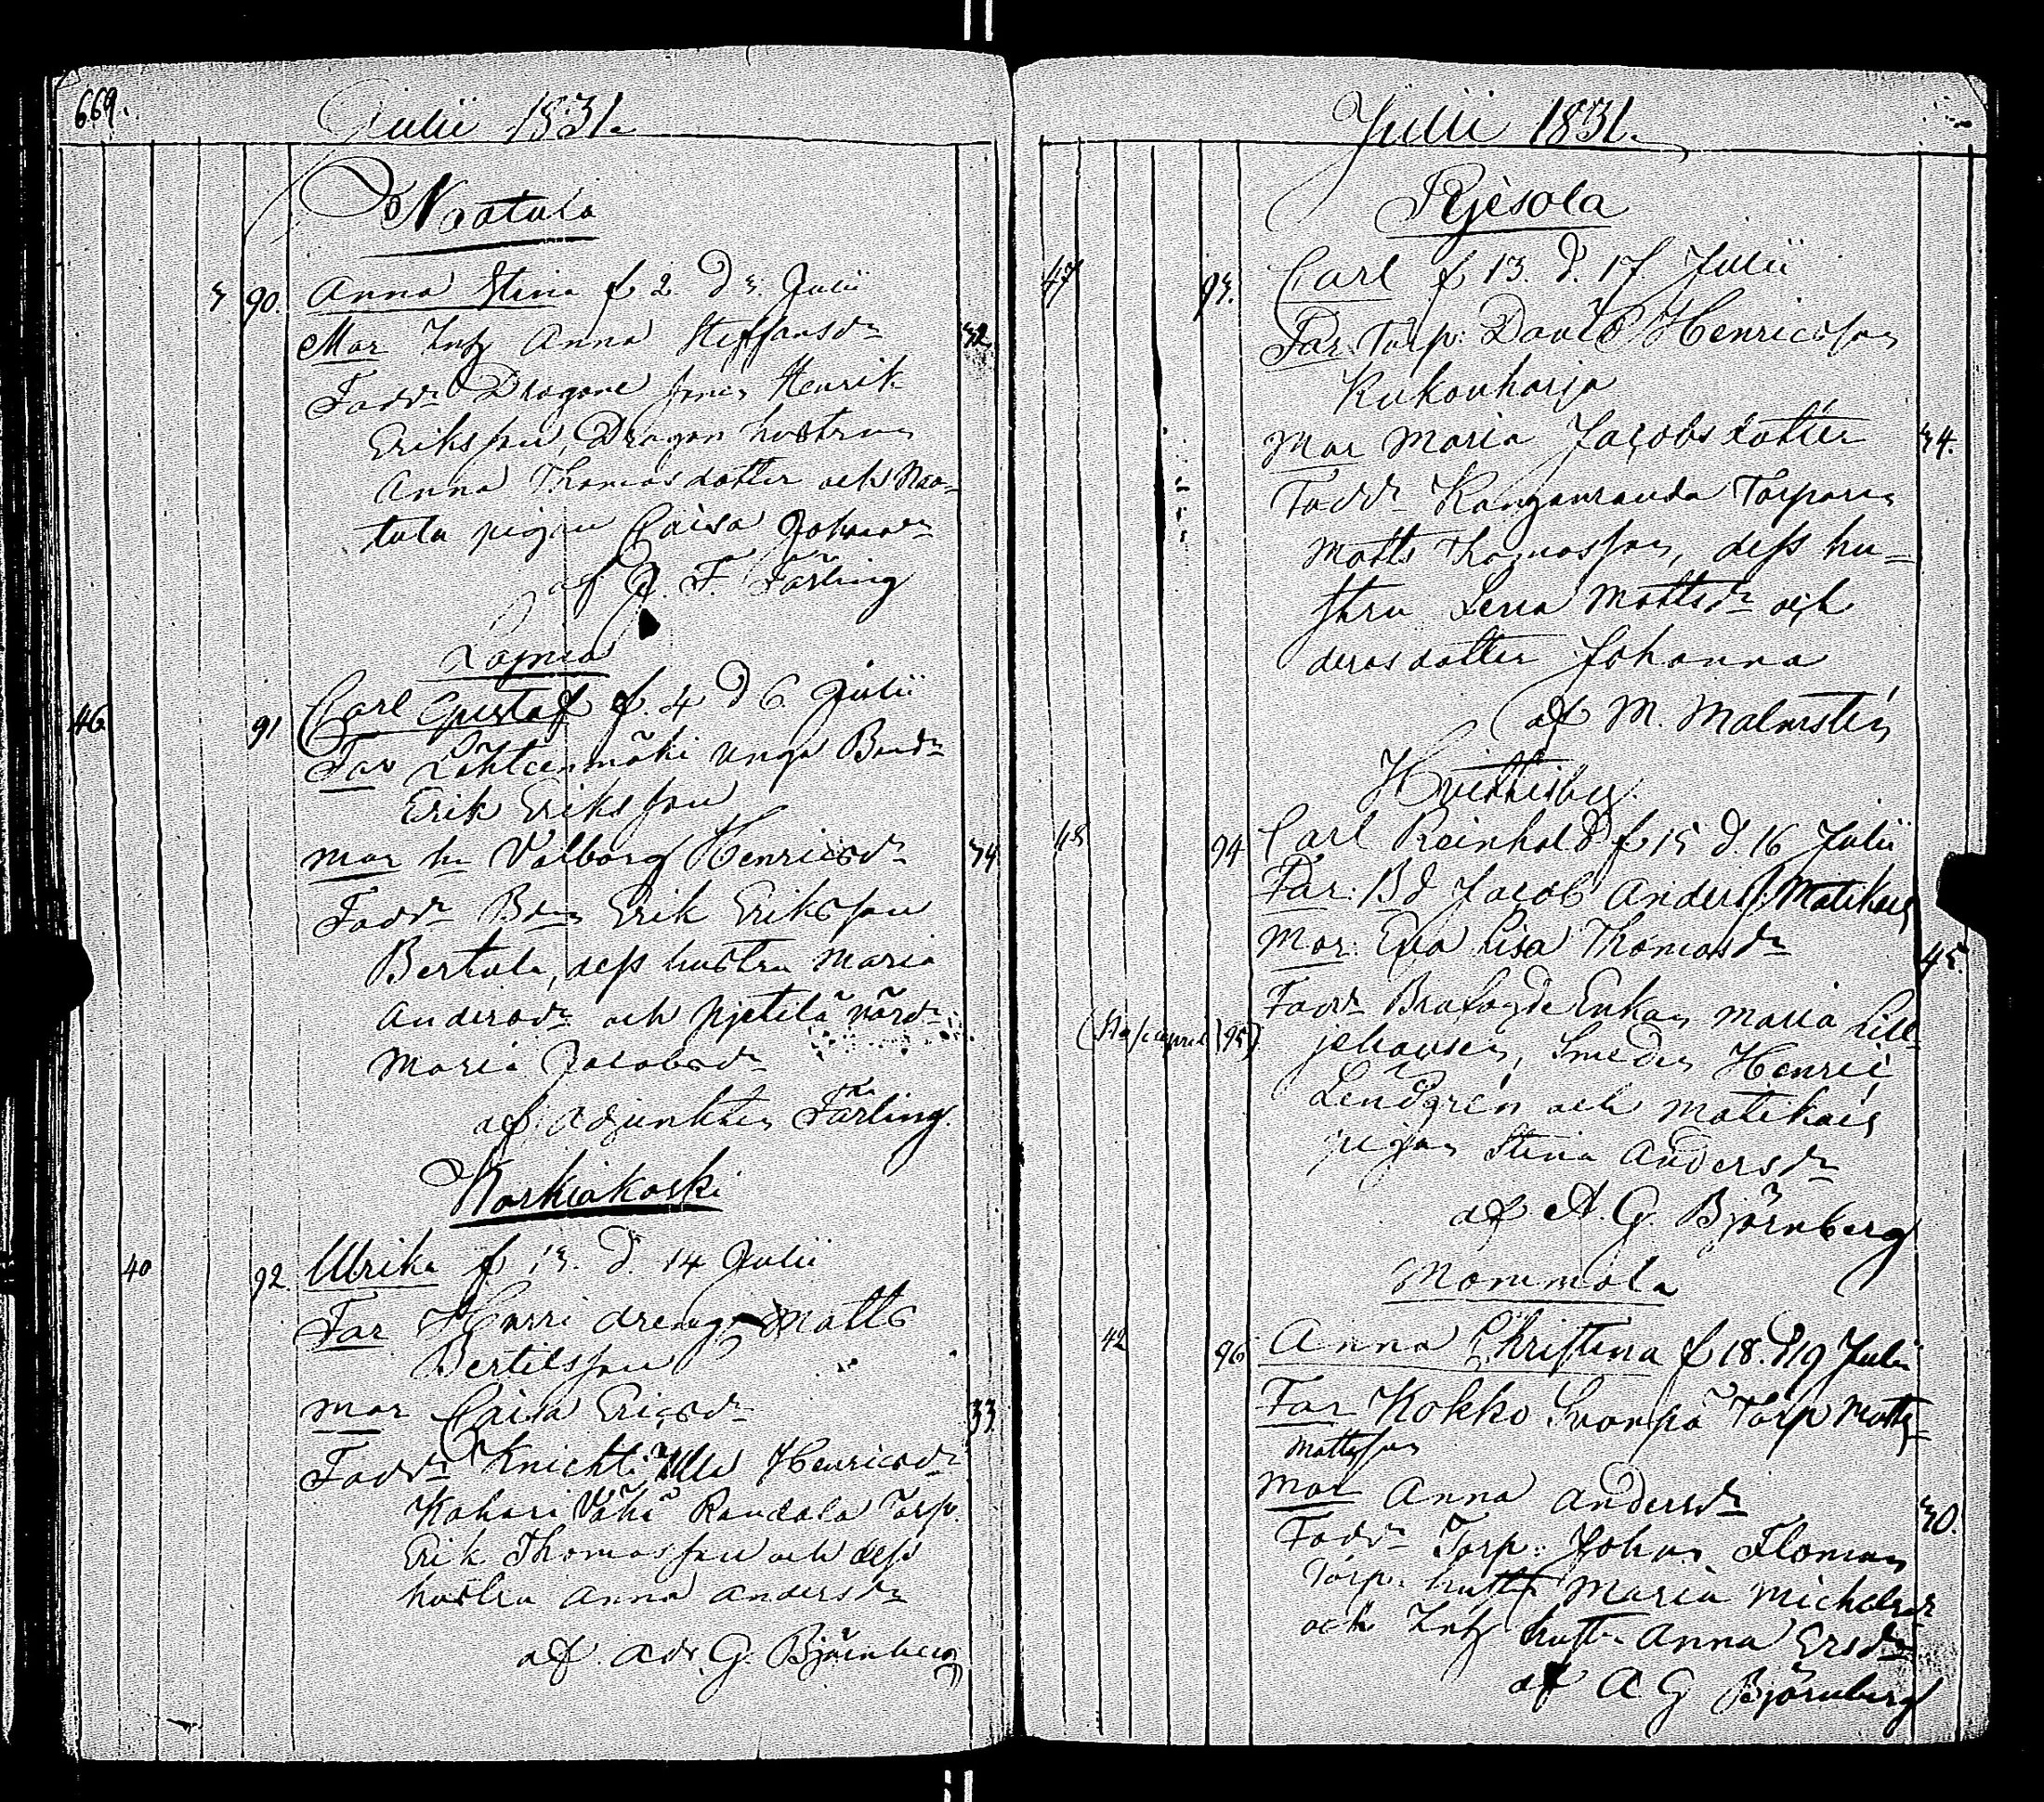 669.
Julii 1831.
Naatula
3 90. Anna Stina f 2 d 3. Julii
Mor Inh Anna Steffansdr 32.
Faddr Dragone sonen Henrik
Eriksson, Dragon hustrun
Anna Thomasdotter och Naa-
tula pigan Caisa Johansdr
af J. F. Färling
46 91 Carl Gustaf f. 4 d 6 Julii
Far Lähteenmäki unga Bondn
Erik Eriksson
Mor hu Valborg Henricsdr 34
Faddr Bdn Erik Eriksson
Bertula, dess hustru Maria
Andersdr och Pjetilä värdn
Maria Jacobsdr
af Adjunkten Färling.
Korkiakoski
40 92. Ulrika f 13. d. 14 Julii
Far Harri dreng Matts
Bertilsson
Mor Caisa Ericsdr 33
Faddr Knichti Ulla Henricsdr
Kahari Vähä Randala Torp.
Erik Thomasson och dess
hustru Anna Andersdr
af Adj. G. Björnberg
Julii 1831.
Rjesola
47 93. Carl f 13. d. 17 Julii
Far: Torp: David Henricsson
Kukonharja
Mor Maria Jacobsdotter 34.
Faddr Kanganranda Torparen
Matts Thomasson, dess hu-
stru Lena Mattsdr och
deras dotter Johanna
af M. Malmstén
Hvittisby.
48 94 Carl Reinhold f 15 d. 16 Julii
Far: Bd Jacob Anders. Matikais
Mor: Eva Lisa Thomasdr 45.
Faddr Brofogde Enkan Maria Lill-
(95) johansen, Smeden Henric
Lendgrén och Matikais
pigan Stina Andersdr
af A. G. Björnberg
Mommola
42 96 Anna Christina f 18. d 19 Julii
Far Kokko Svorpa Torp Matts
Mattsson
Mor Anna Andersdr 30.
Faddr Torp: Johan Floman
Torp. hustr Maria Michelsdr
och Inh hustr Anna Ersdr
af A G Björnberg